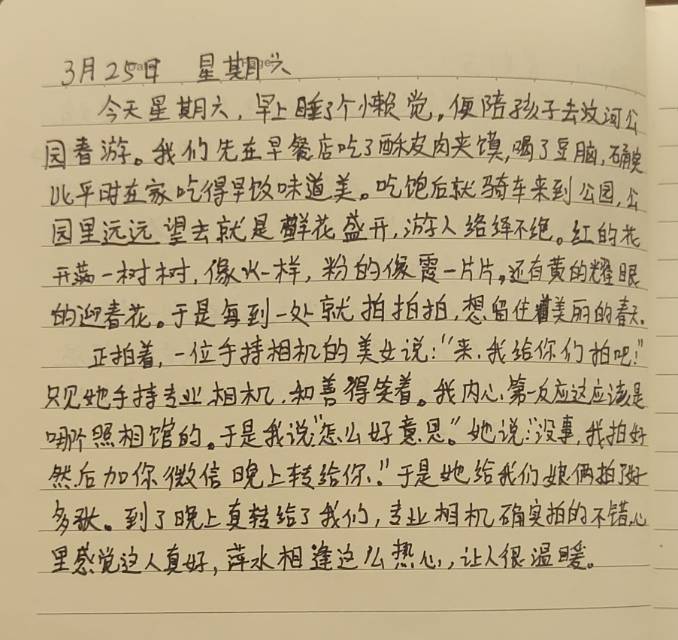 3月25日 星期六
今天星期六,早上睡了个懒觉,便陪孩子去汶河公
园春游。我们先在早餐店吃了酥皮肉夹馍,喝了豆脑,确实
比平时在家吃得早饭味道美。吃饱后就骑车来到公园,公
园里远远望去就是鲜花盛开,游人络绎不绝。红的花
开满一树树,像火一样,粉的像霞一片片,还有黄的耀眼
的迎春花。于是每到一处就拍拍拍,想留住着美丽的春天。
正拍着,一位手持相机的美女说:"来,我给你们拍吧!"
只见她手持专业相机,和善得笑着。我内心第一反应这应该是
哪个照相馆的。于是我说"怎么好意思。"她说:"没事,我拍好
然后加你微信晚上转给你。"于是她给我们娘俩拍了好
多张。到了晚上真转给了我们,专业相机确实拍的不错,心
里感觉这人真好,萍水相逢这么热心,让人很温暖。